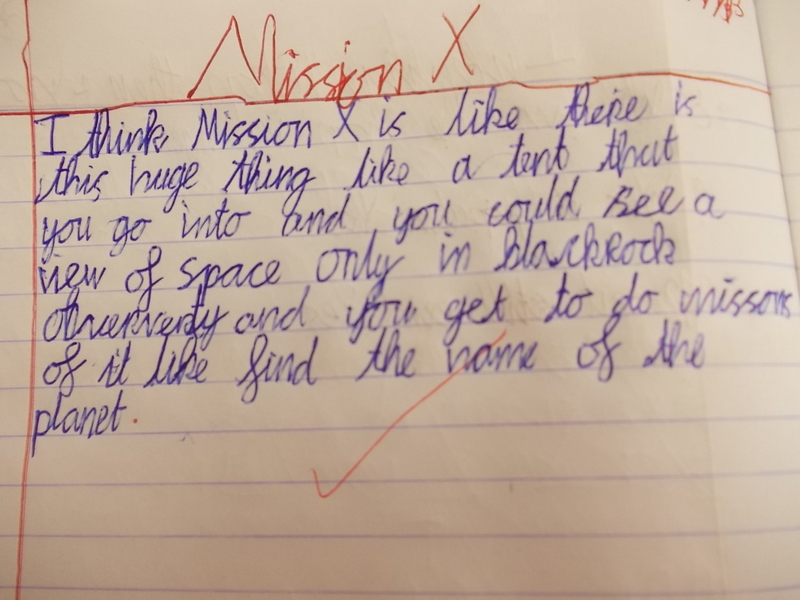 Mission X
I think Mission X is like there is
this huge thing like a tent that
you go into and you could see a
view of space only in blackRock
and you get to do missons
of it like find the name of the
planet.